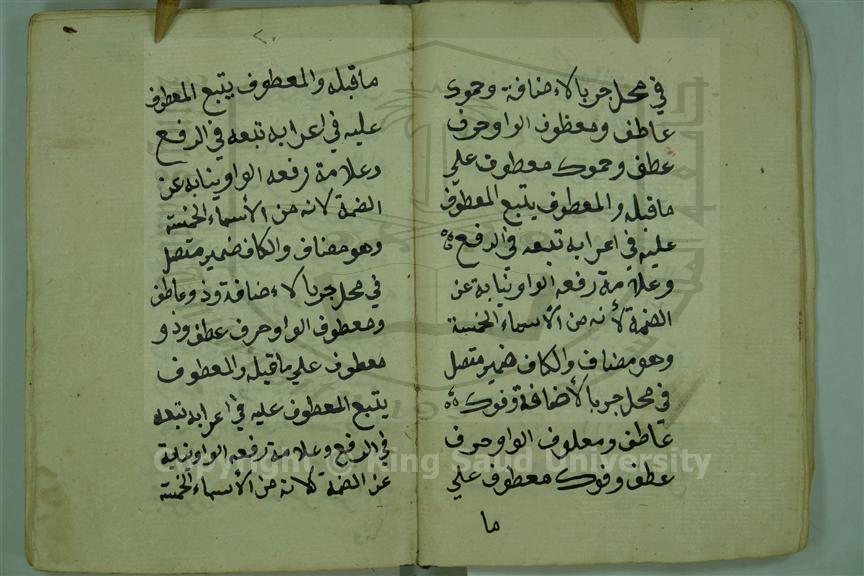 في محل جر بالاءضافة وحموك
عاطف ومعظوف الواو حرف
عطف وحموك معطوف علي
ما قبله والمعطوف يتبع المعطوف
عليه في اعرابه تبعه في الرفع
وعلامة رفعه الواو نيابة عن
الضمة لأنه من الأسماء الخمسة
وهو مضاف والكاف ضمير متصل
في محل جر بالأضافة وفوك
عاطف ومعلوف الواو حرف
عطف وفوك معطوف علي
ما
ما قبله والمعطوف يتبع المعطوف
عليه في اعرابه تبعه في الرفع
وعلامة رفعه الواو نيابه عن
الضمة لانه من الأسماء الخمسة
وهو مضاف والكاف ضمير متصل
في محل جر بالاءضافة وذو عاطف
ومعطوف الواو حرف عطف وذو
معطوف علي ما قبله والمعطوف
يتبع المعطوف عليه في اعرابه تبعه
في الرفع وعلامة رفعه الواو نيابة
عن الضمة لانه من الأسماء الخمسة
Copyright © King Saud University